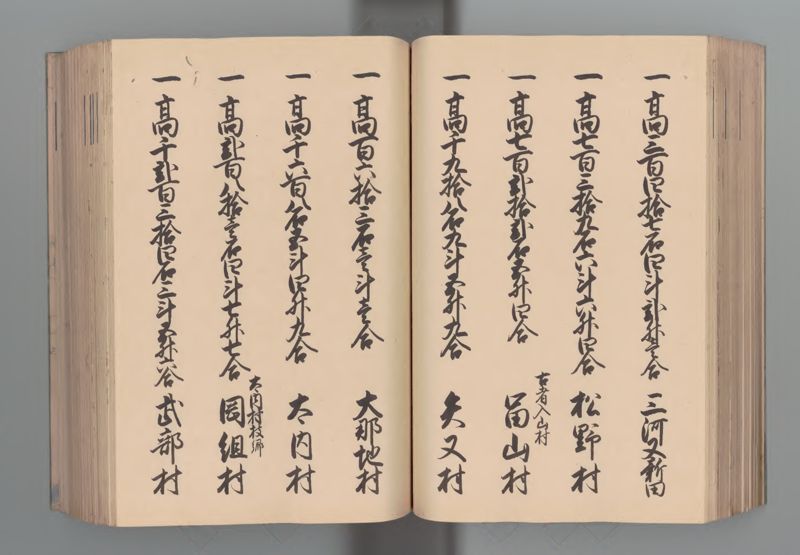 一 高三百四拾七石四斗弐升壱合 三河又新田
一 高七百三拾九石六斗六升四合 松野村
一 高七百弐拾弐石五升四合
古者入山村
富山村
一 高千九拾八石九斗五升九合 矢又村
一 高百六拾三石壱斗壱合 大那地村
一 高千六百八石五斗四升九合 大内村
一 高弐百八拾壱石四斗七升七合
大内村枝郷
岡組村
一 高千弐百三拾四石三斗五升六合 武部村